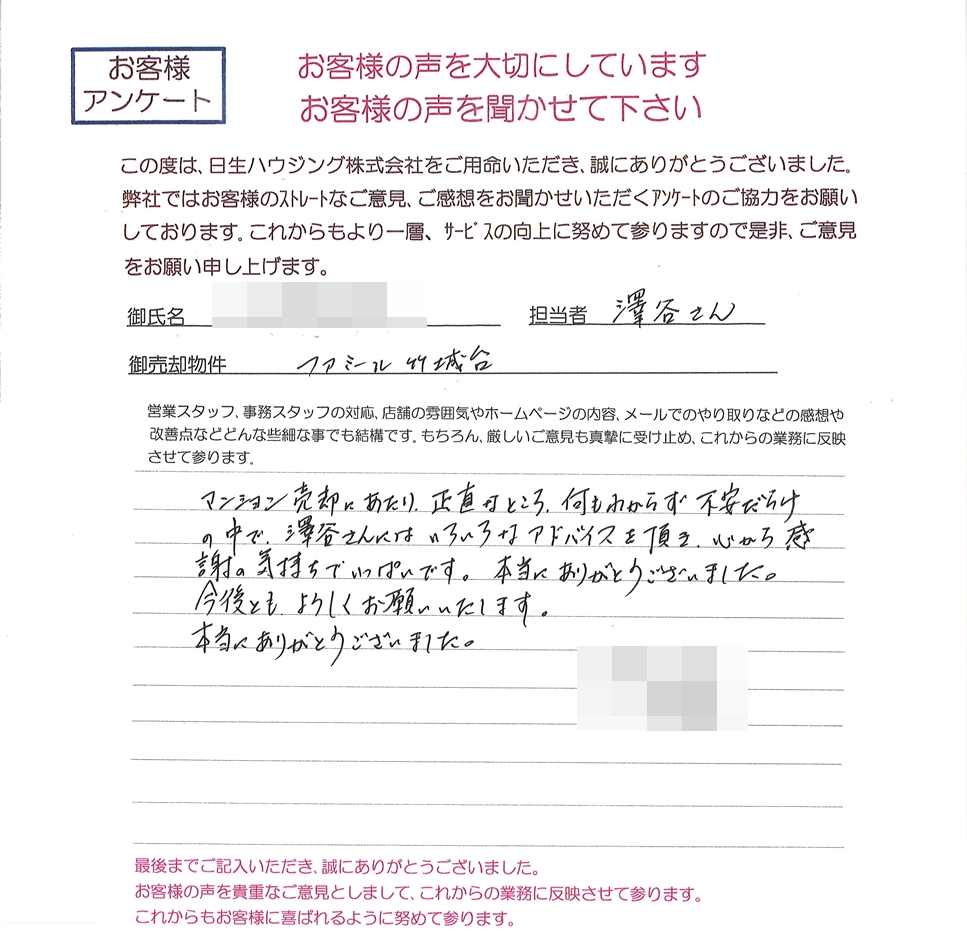 お客様
アンケート
お客様の声を大切にしています
お客様の声を聞かせて下さい
この度は、日生ハウジング株式会社をご用命いただき、誠にありがとうございました。
弊社ではお客様のｽﾄﾚｰﾄなご意見、ご感想をお聞かせいただくｱﾝｹｰﾄのご協力をお願い
しております。これからもより一層、ｻｰﾋﾞｽの向上に努めて参りますので是非、ご意見
をお願い申し上げます。
御氏名
担当者 澤谷さん
御売却物件 ファミール竹城台
営業スタッフ、事務スタッフの対応、店舗の雰囲気やホームページの内容、メールでのやり取りなどの感想や
改善点などどんな些細な事でも結構です。もちろん、厳しいご意見も真摯に受け止め、これからの業務に反映
させて参ります。
マンション売却にあたり、正直なところ、何もわからず不安だらけ
の中で、澤谷さんにはいろいろなアドバイスを頂き、心から感
謝の気持ちでいっぱいです。本当にありがとうございました。
今後とも、よろしくお願いいたします。
本当にありがとうございました。
最後までご記入いただき、誠にありがとうございました。
お客様の声を貴重なご意見としまして、これからの業務に反映させて参ります。
これからもお客様に喜ばれるように努めて参ります。